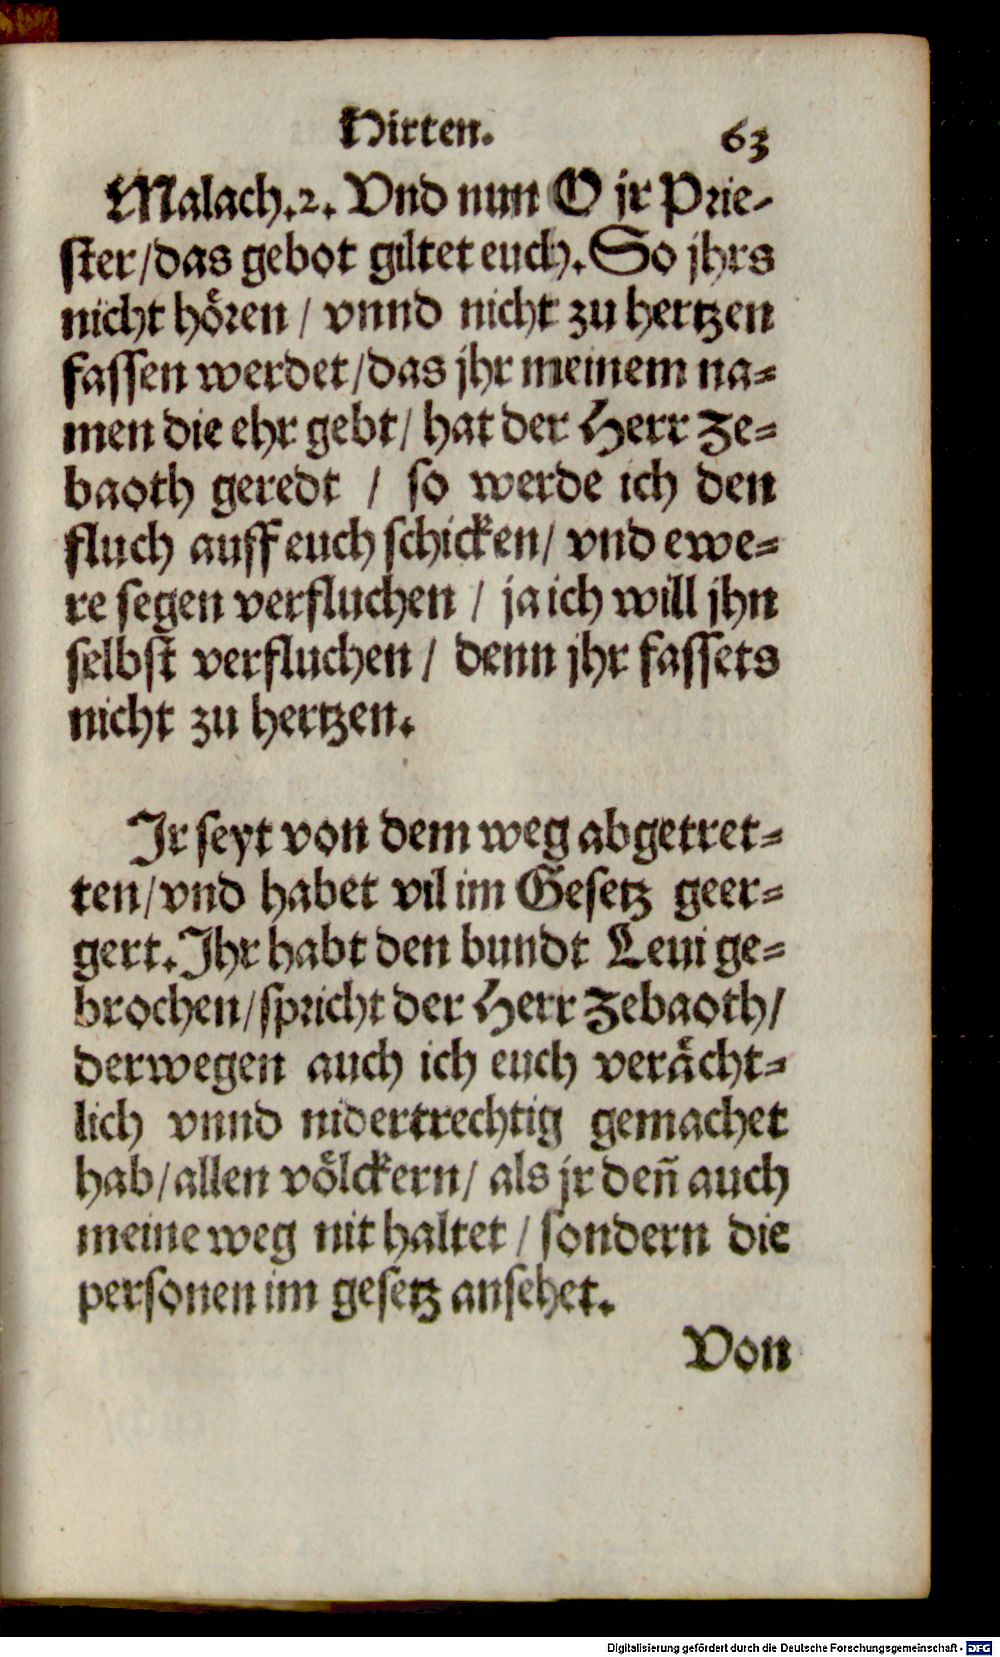 Hirten. 63
Malach.2. Vnd nun O jr Prie-
ster/das gebot giltet euch. So jhrs
nicht hören / vnnd nicht zu hertzen
fassen werdet/das jhr meinem na=
men die ehr gebt/ hat der Herr Ze=
baoth geredt / so werde ich den
fluch auff euch schicken/ vnd ewe=
re segen verfluchen / ja ich will jhn
selbst verfluchen / denn jhr fassets
nicht zu hertzen.
Jr seyt von dem weg abgetret=
ten/vnd habet vil im Gesetz geer=
gert. Jhr habt den bundt Leui ge=
brochen/spricht der Herr Zebaoth/
derwegen auch ich euch verächt=
lich vnnd nidertrechtig gemachet
hab/allen völckern/ als jr deñ auch
meine weg nit haltet / sondern die
personen im gesetz ansehet.
Von
Digitalisierung gefördert durch die Deutsche Forschungsgemeinschaft - DFG